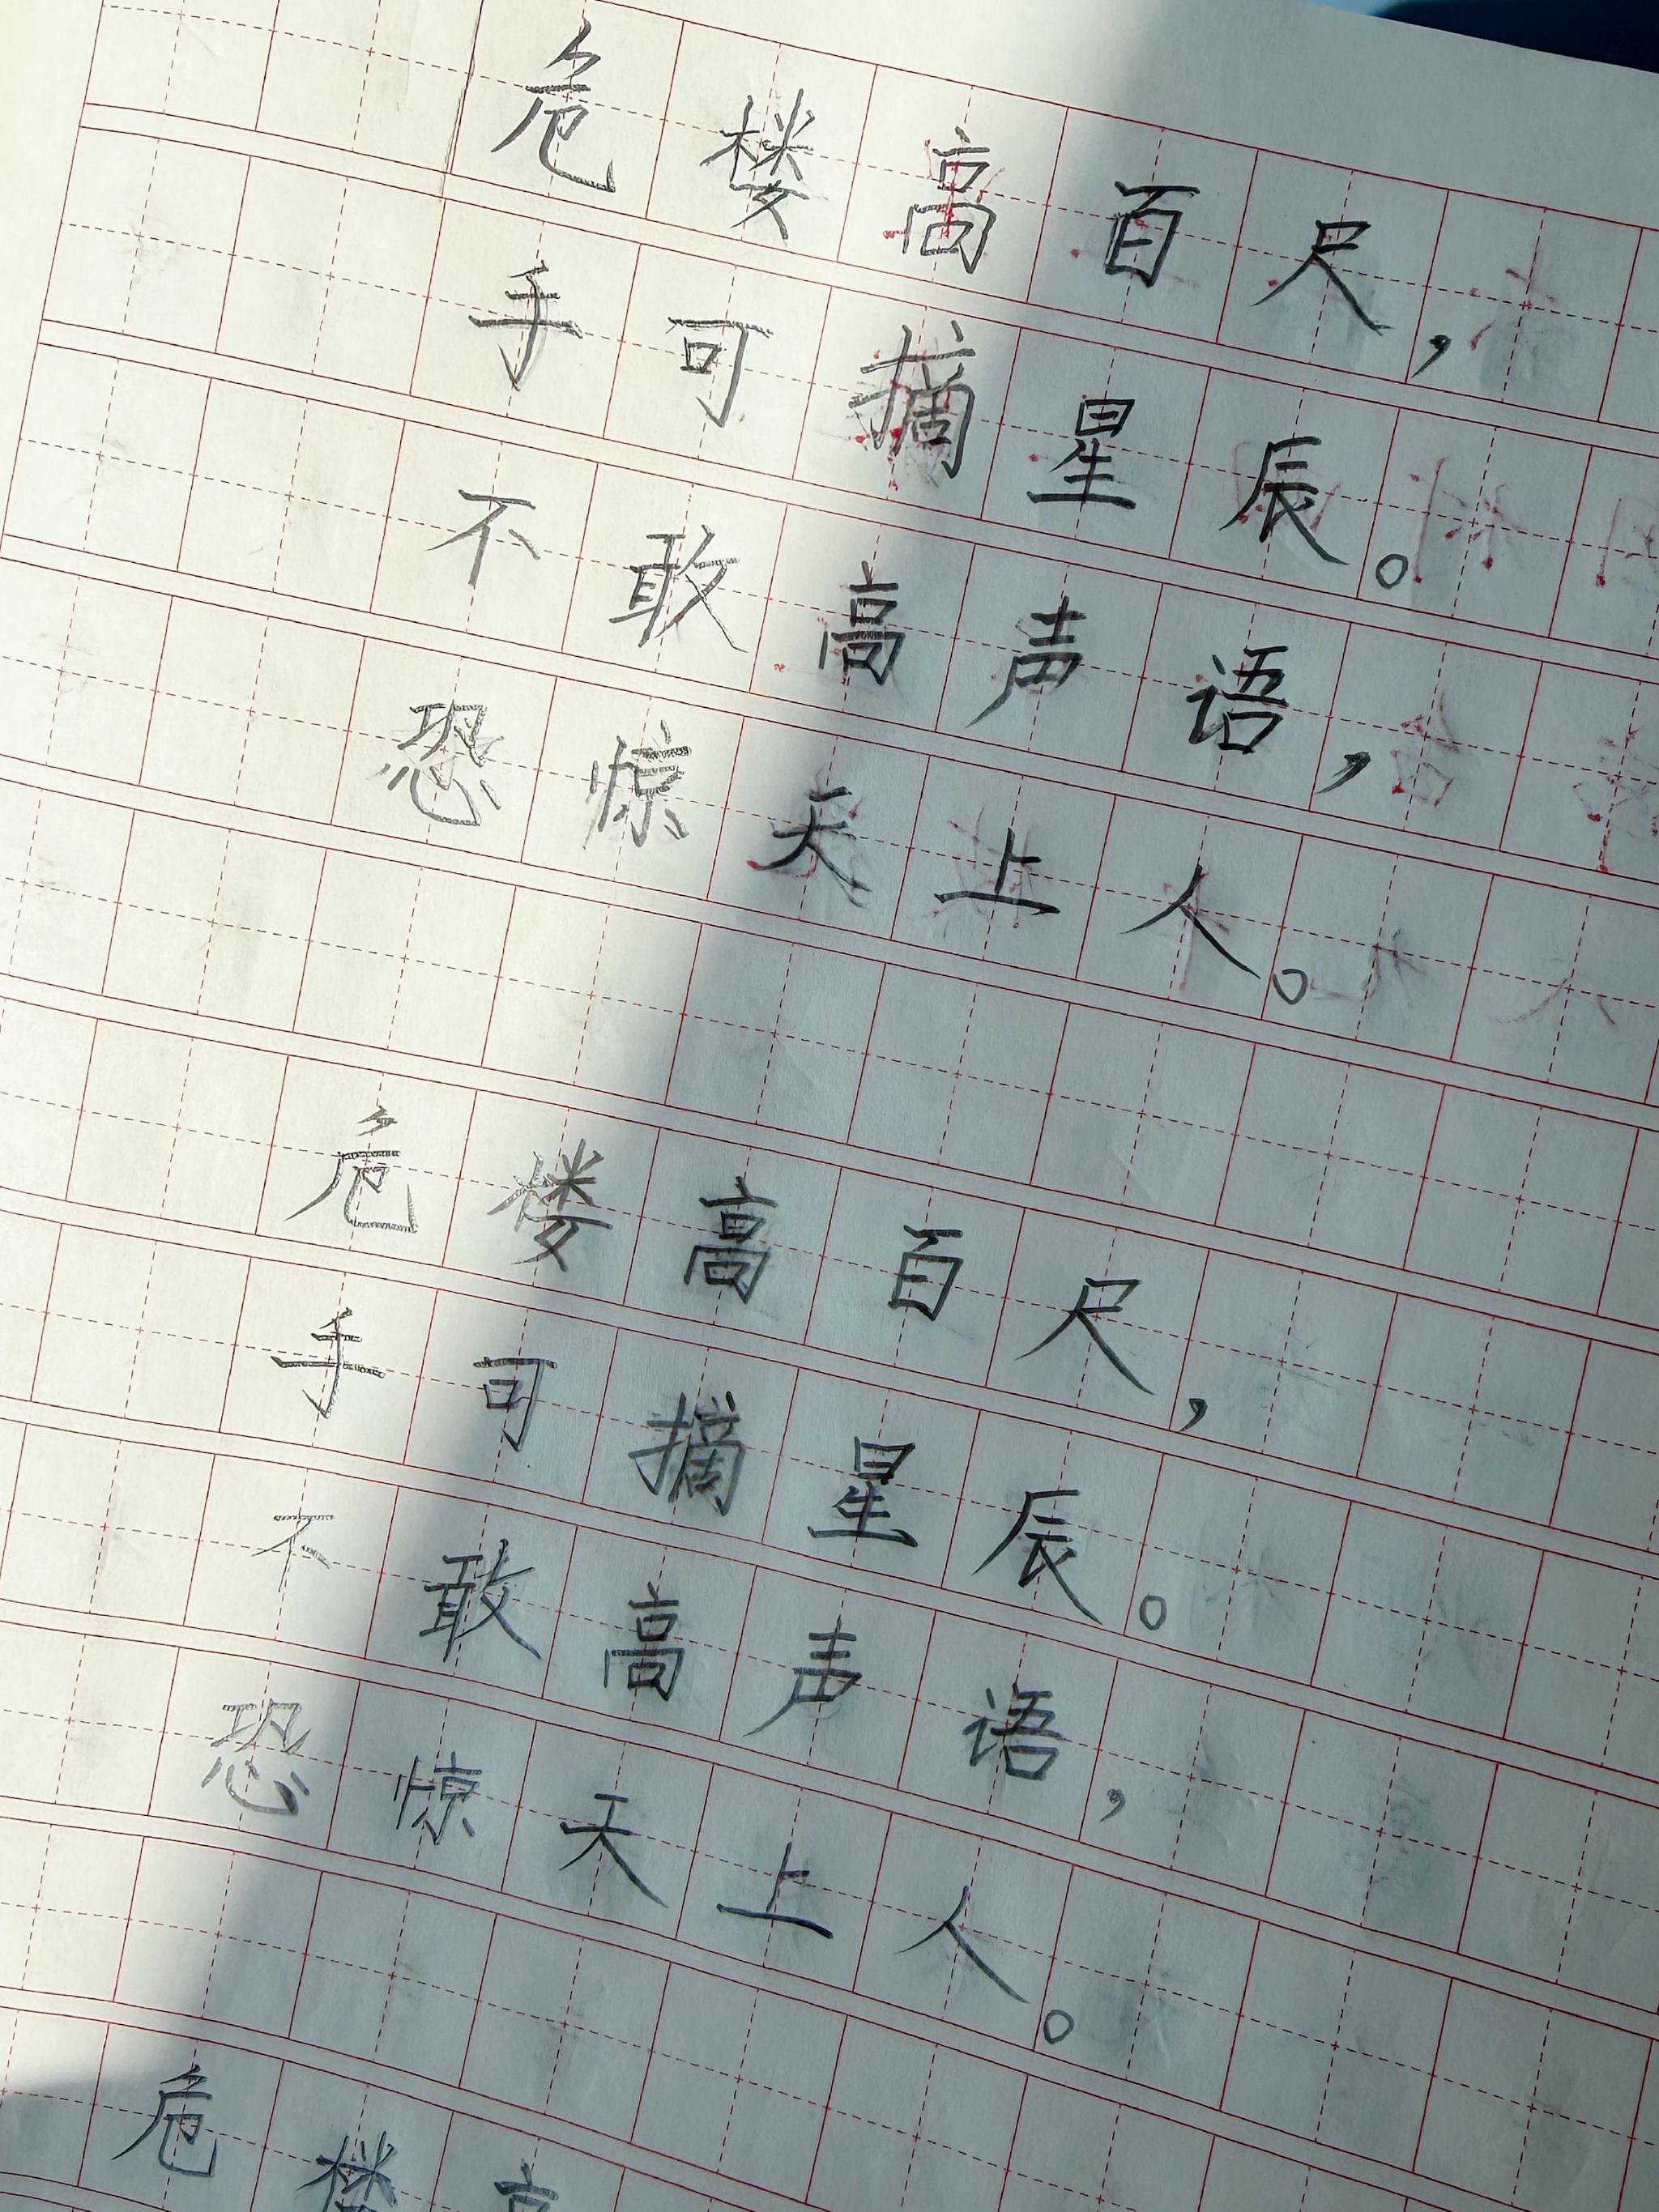 危楼高百尺，
手可摘星辰。
不敢高声语，
恐惊天上人。
危楼高百尺，
手可摘星辰。
不敢高声语，
恐惊天上人。
危楼高